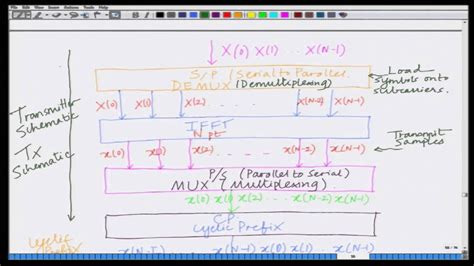 X(0) X(1) ... X(N-1)
S/P (Serial to Parallel)
DEMUX (Demultiplexing)
Load
Symbols onto
subcarriers.
X(0) X(1) X(2) ... X(N-2) X(N-1)
IFFT
N pt
Transmitter
Schematic
Tx
Schematic
Transmit
Samples
x(0) x(1) x(2) ... x(N-2) x(N-1)
P/S (Parallel to Serial)
MUX (Multiplexing)
x(0) x(1) x(2) ... x(N-2) x(N-1)
CP
Cyclic Prefix
Cyclic
Prefix
x(0) x(1) ... x(N-2) x(N-1)